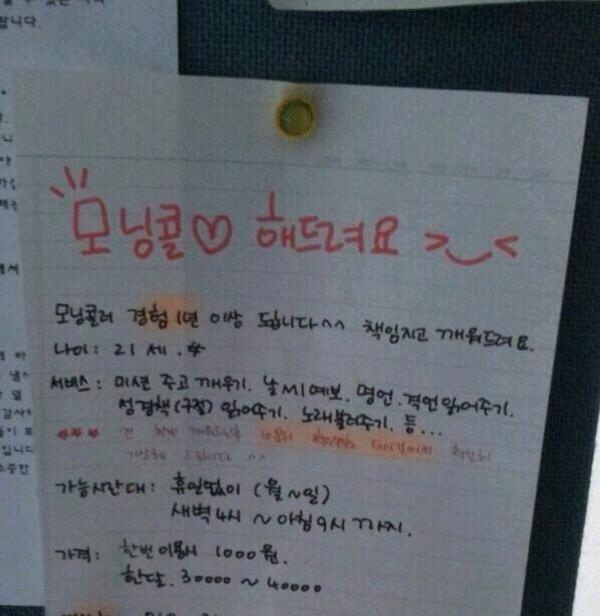 모닝콜♡ 해드려요 >‿<
모닝콜러 경험 1년 이상 됩니다^^ 책임지고 깨워드려요.
나이: 21세.
서비스: 미션 주고 깨우기. 날씨예보. 명언.격언읽어주기.
성경책(구절) 읽어주기. 노래불러주기. 등...
전 한번 깨워드린후 10분뒤 다시
드립니다 ^^
가능시간대: 휴일없이 (월~일)
새벽4시 ~ 아침9시 까지.
가격: 한번 이용시 1000원.
한달. 30000 ~ 40000